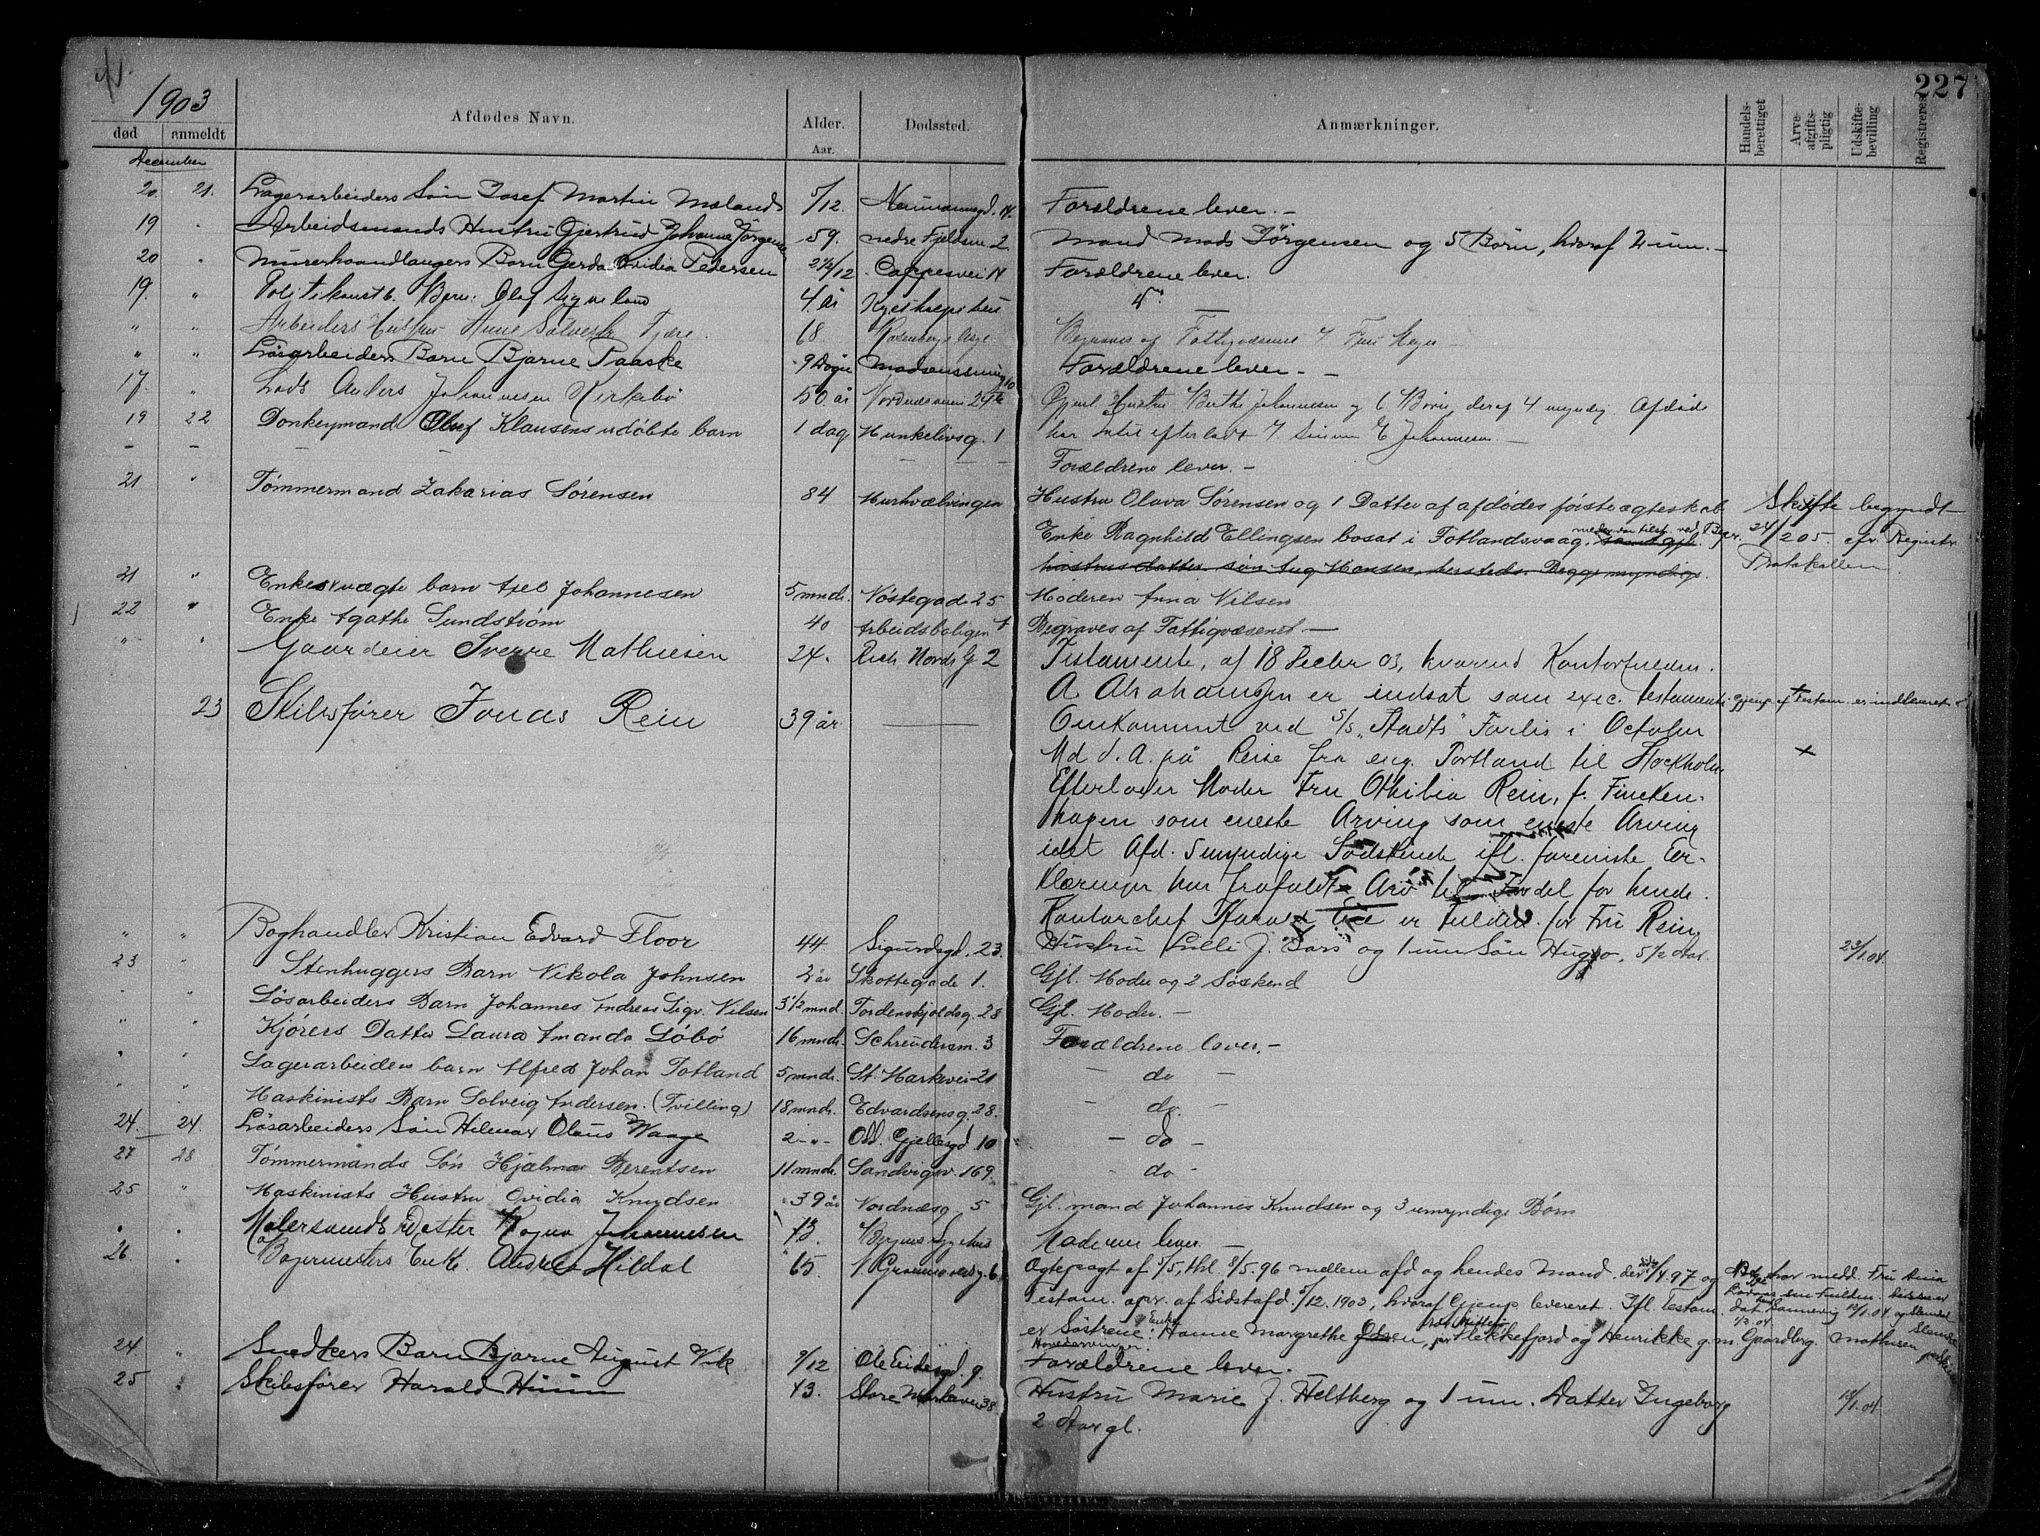 227
1903
død anmeldt Afdødes Navn. Alder. Aar. Dødssted. Anmærkninger. Handelsberettiget Arveafgiftspligtig Udskiftebevilling Registreres
December
20. 21. Lagerarbeiders Søn Josef Martin Mælands 5/12 Neumannsgd. Forældrene lever. –
19 " Arbeidsmands Hustru Gjertrud Johanne Jørgensen 59. nedre Fjeldsm 2 Mand Mads Jørgensen og 5 Børn, hvoraf 2 um. –
20 " Murerhaandlangers Barn Gerda Ovidia Pedersen Cappesvei 14 Forældrene lever.
19. " Politikonstb. Barn: Olaf 4 År
" " Arbeiders Hustru Anne 68 Rosenbergs Begraves af Fattigvæsenet
" " Løsarbeiders Barn Bjarne Paaske 9 Døgn Forældrene lever. –
17. " Lods Anders Johannesen Kirkebø 50 år Nordnæsveien Gjenl. Hustru Berthe Johannesen og 6 Børn, deraf 4 myndig. Afdøde
19 22 Donkeymand Oluf Klausens udøbte barn 1 dag Munkelivsg. 1 har intet efterladt
Forældrene lever. –
21 " Tømmermand Zakarias Sørensen 84 Murhvælvingen Hustru Olava Sørensen og 1 Datter af afdødes første ægteskab Skifte begyndt
Enke Ragnhild Ellingsen bosat i Fotlandsvaag, 24/2 05. cfr. Registr.
hustrus datter, søn Aug Hansen, hersteds. Begge myndige. Protokollen
21 " Enkes uægte barn Axel Johannesen 5 mndr. Nøstegade 25 Moderen Anna Nilsen
22 " Enke Agathe Sundstrøm 40 Arbeidsboligen Begraves af Fattigvæsenet –
" " Gaardeier Sverre Mathiesen 24. Rich. Nords G 2 Testamente, af 18 Decbr 03, hvorved Kontorfuldm.
A Abrahamsen er indsat som exec. testamenti Gjenp. af Testam. er indleveret
23 Skibsfører Jonas Rein 39 år Omkommet ved S/S "Stadts" Forlis i October
Md d. A. på Reise fra eng. Portland til Stockholm
Efterlader Moder Fru Othilia Rein, f. Fincken-
hagen som eneste Arving som eneste Arving
idet Afd. 5 myndige Sødskende ifl. foreviste Er-
klæringer har frafaldt Arv til Fordel for hende.
Kontorchef Harald er Fuldm. for Fru Rein
" " Boghandler Kristian Edvard Floor 44 Sigurdsgd. 23. Hustru Lilli J. Sars og 1 um Søn Hugo, 5½ Aar. 23/1.04.
23 " Stenhuggers Barn Nikola Johnsen 2 år Skottegade 1. Gjl. Moder og 2 Søskend
" " Løsarbeiders Barn Johannes Andreas Sigv. Nilsen 3½ mnd. Tordenskjoldsg. 28 Gjl. Moder. –
" " Kjørers Datter Laura Amanda Løbø 16 mndr. Schreudersm. 3 Forældrene lever. –
" " Lagerarbeiders barn Alfred Johan Totland 5 mndr. St. Markevei 21 – do –
" " Maskinists Barn Solveig Andersen. (Tvilling) 18 mndr. Edvardsensg. 28. – do. –
24. 24. Løsarbeiders Søn Hilmar Olaus Waage 2 -"- Odd. Gjellesgd 10 – do –
27 28 Tømmermands Søn Hjalmar Berentsen 11 mndr. Sandvigsv. 169. – do –
25 " Maskinists Hustru Ovidia Knudsen 39 år Nordnæsg. 5 Gjl. mand Johannes Knudsen og 3 umyndige Børn
" " Datter Johannesen 13. Bergens Sygehus Moderen lever. –
26. " Bagermesters Enke Andrea Hildal 65. Ægtepagt af mellem afd og hendes Mand,
Testam. opr. af Sidstafd. 5/12. 1903, hvoraf Gjenp. leveret. Ifl. Testam.
er Søstrene: Enke Hanne Margrethe Olsen, Flekkefjord og Henrikke g.m. Gaardbg. Mathisen
Hovedarvinger.
24 " Snedkers Barn Bjarne August Vik 9/12 Ole Eidesgd. 9. Forældrene lever.
25 " Skibsfører Harald 43. Store Markevei 38 Hustru Marie J. Heltberg og 1 um. Datter Ingeborg
2 Aar gl.